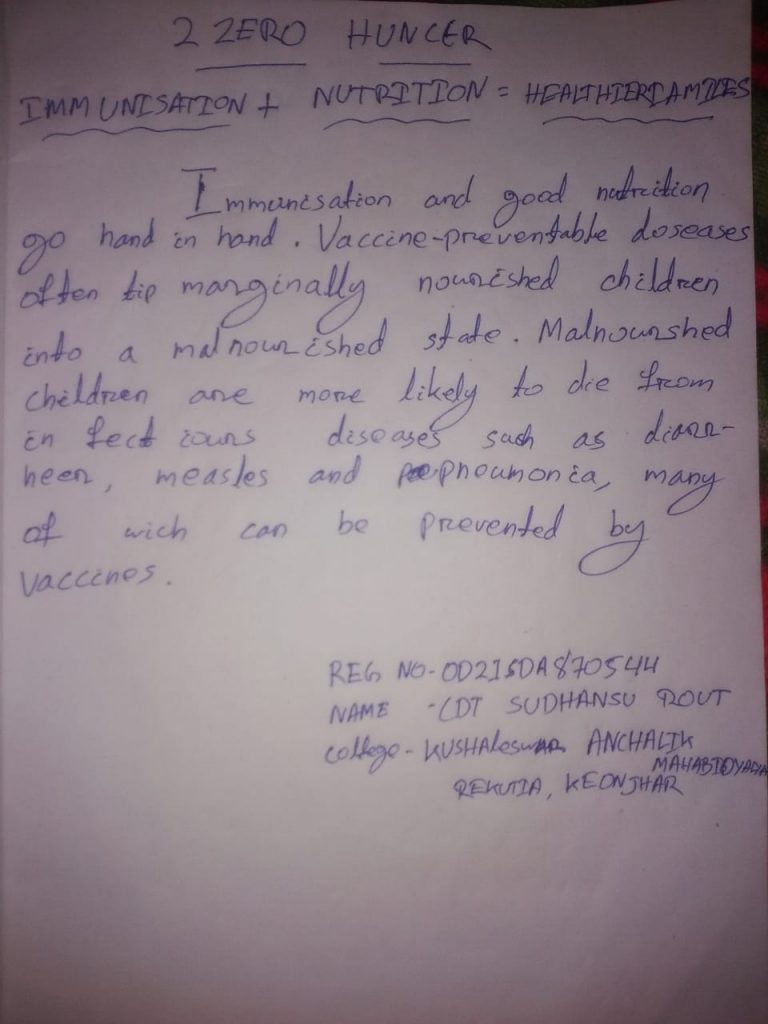 2 ZERO HUNCER
IMMUNISATION + NUTRITION = HEALTHIERFAMILES
Immunisation and good nutrition
go hand in hand. Vaccine-preventable doseases
often tip marginally nourished children
into a malnourished state. Malnourshed
children are more likely to die from
in fect iours diseases such as diarr-
heer, measles and pneumonia, many
of wich can be prevented by
vaccines.
REG NO-OD21SDA870544
NAME -CDT SUDHANSU ROUT
college-KUSHAleswAR ANCHALIK
MAHABIDYALYA
REKUTIA, KEONJHAR